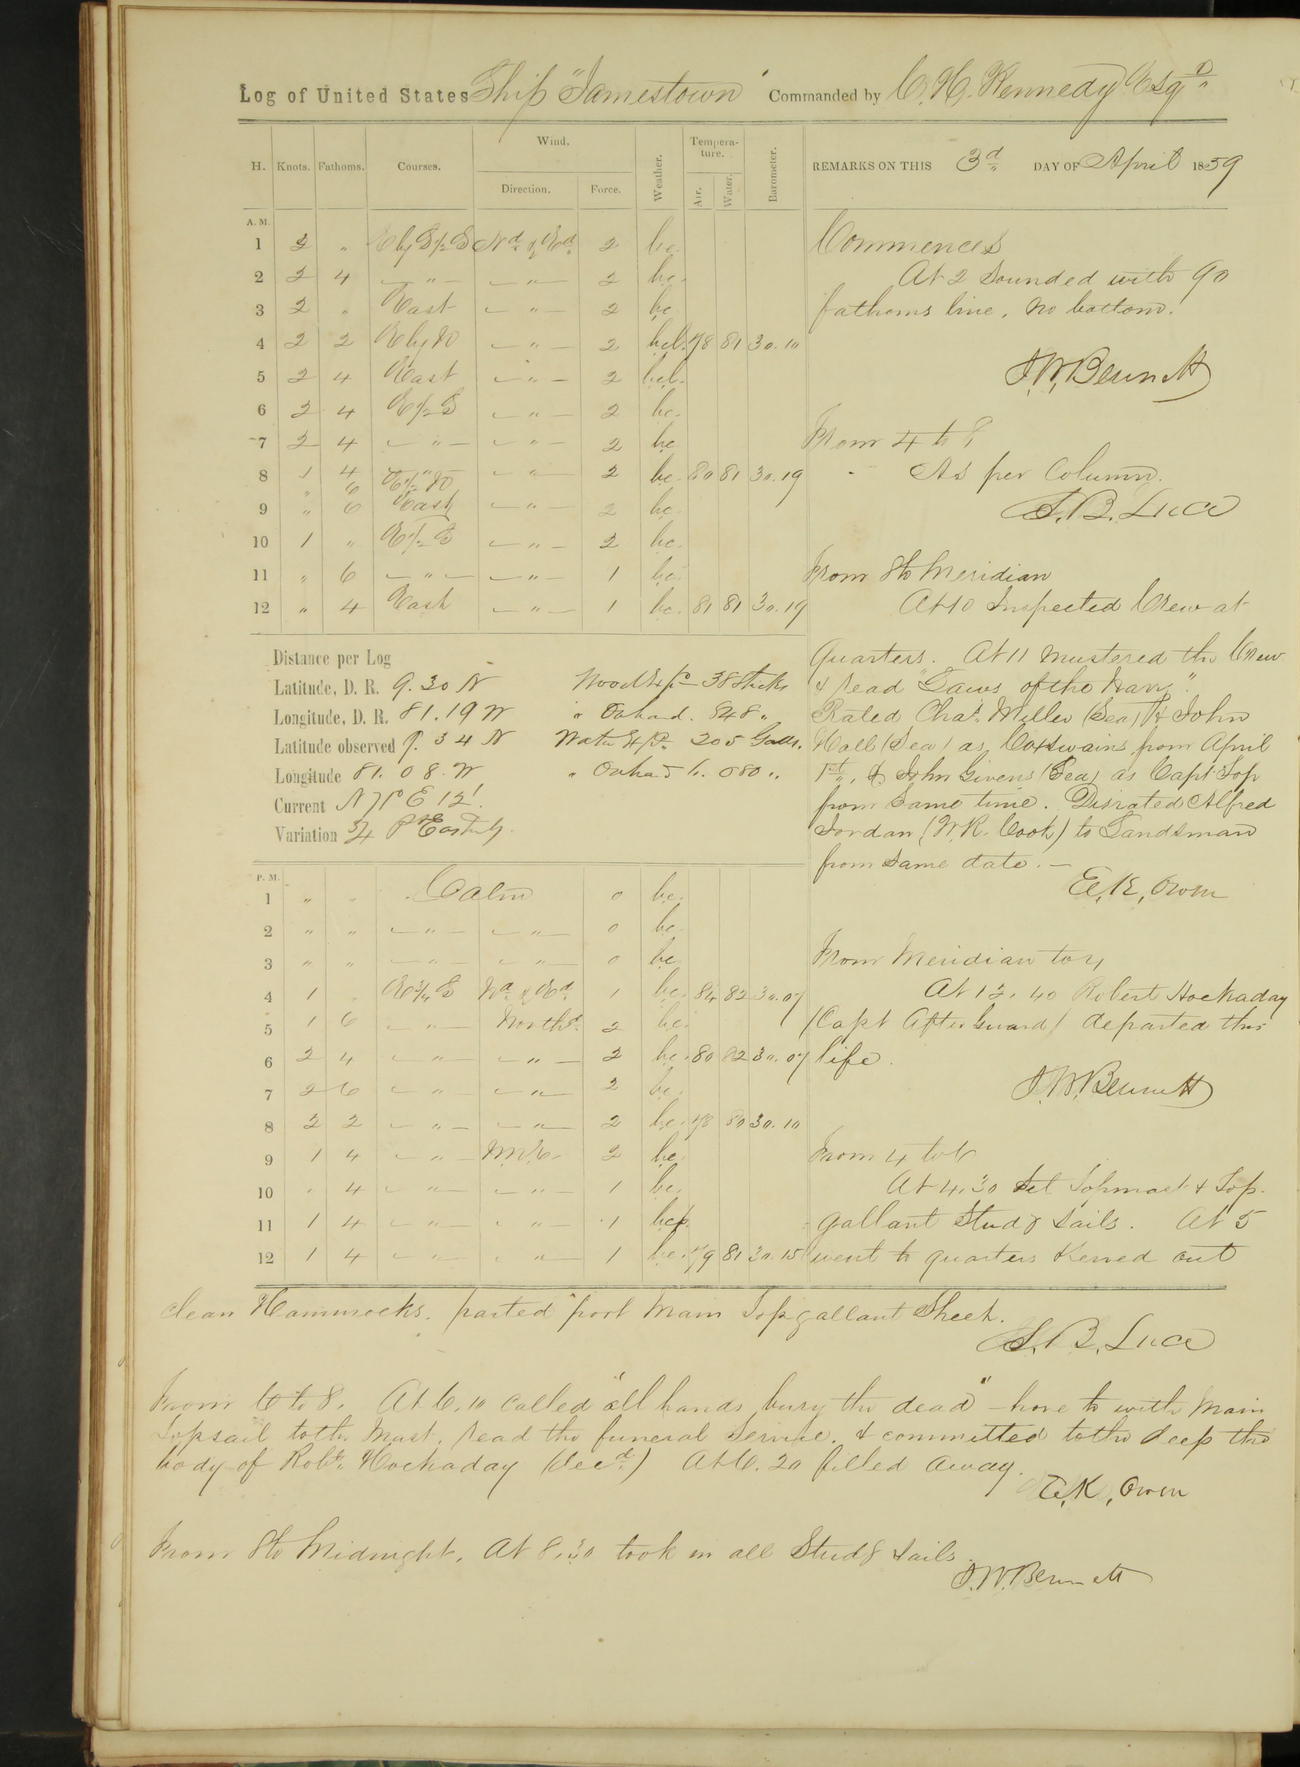 Log of United States Ship "Jamestown" Commanded by C. H. Kennedy Esqr
H. Knots. Fathoms. Courses. Wind. Direction. Force. Weather. Tempera-ture. Air. Water. Barometer. REMARKS ON THIS 3d DAY OF April 1859
A. M.
1 2 " E by S ½ S Nd & Ed 2 bc.
2 2 4 — " — — " — 2 bc.
3 2 " East — " — 2 bc
4 2 2 E by N — " — 2 bcl. 78 81 30.10
5 2 4 East — " — 2 bcl.
6 2 4 E ½ S — " — 2 bc.
7 2 4 — " — — " — 2 bc
8 1 4 — " — — " — 2 bc. 80 81 30.19
" 6 E ½ N
9 " 6 East — " — 2 bc.
10 1 " E ½ S — " — 2 bc.
11 " 6 — " — — " — 1 bc.
12 " 4 East — " — 1 bc. 81 81 30.19
Commences
At 2 Sounded with 90
fathoms line, no bottom.
J. W. Bennett
From 4 to 8
As per Column.
S. B. Luce
From 8 to Meridian
At 10 Inspected Crew at
Quarters. At 11 mustered the Crew
& read "Laws of the Navy".
Rated Chas. Miller (Sea) & John
Hall (Sea) as Coxswains from April
1st, & John Givens (Sea) as Capt Top
from Same time. Disrated Alfred
Jordan (W. R. Cook) to Landsman
from Same date. —
E. K. Owen
Distance per Log
Latitude, D. R. 9.30 N Wood Exp. 38 Sticks
Longitude, D. R. 81.19 W " On hand. 848 "
Latitude observed 9.34 N Water Exp. 205 Galls.
Longitude 81.08. W " On hand 080 "
Current E 12'.
Variation Easterly.
P. M.
1 " " Calm 0 bc.
2 " " — " — — " — 0 bc
3 " " — " — — " — 0 bc
4 1 " E ¾ S Nd & Ed 1 bc. 84 82 30.07
5 1 6 — " — Northd. 2 bc.
6 2 4 — " — — " — 2 bc. 80 82 30.07
7 2 6 — " — — " — 2 bc.
8 2 2 — " — — " — 2 bc. 78 80 30.10
9 1 4 — " — N.N.E. 2 bc.
10 " 4 — " — — " — 1 bc.
11 1 4 — " — — " — 1 bcp
12 1 4 — " — — " — 1 bc. 79 81 30.15
From Meridian to 4
At 12.40 Robert Hockaday
(Capt After Guard) departed this
life.
J. W. Bennett
From 4 to 6
At 4.30 Set Topmast & Top-
gallant Studg Sails. At 5
went to quarters served out
clean Hammocks. parted port Main Topgallant Sheet.
S. B. Luce
From 6 to 8. At 6.10 called "all hands bury the dead" — hove to with Main
Topsail to the Mast, read the funeral Service, & committed to the deep the
body of Robt. Hockaday (decd.) At 6.20 filled away.
E. K. Owen
From 8 to Midnight. At 8.30 took in all Studg Sails.
J. W. Bennett